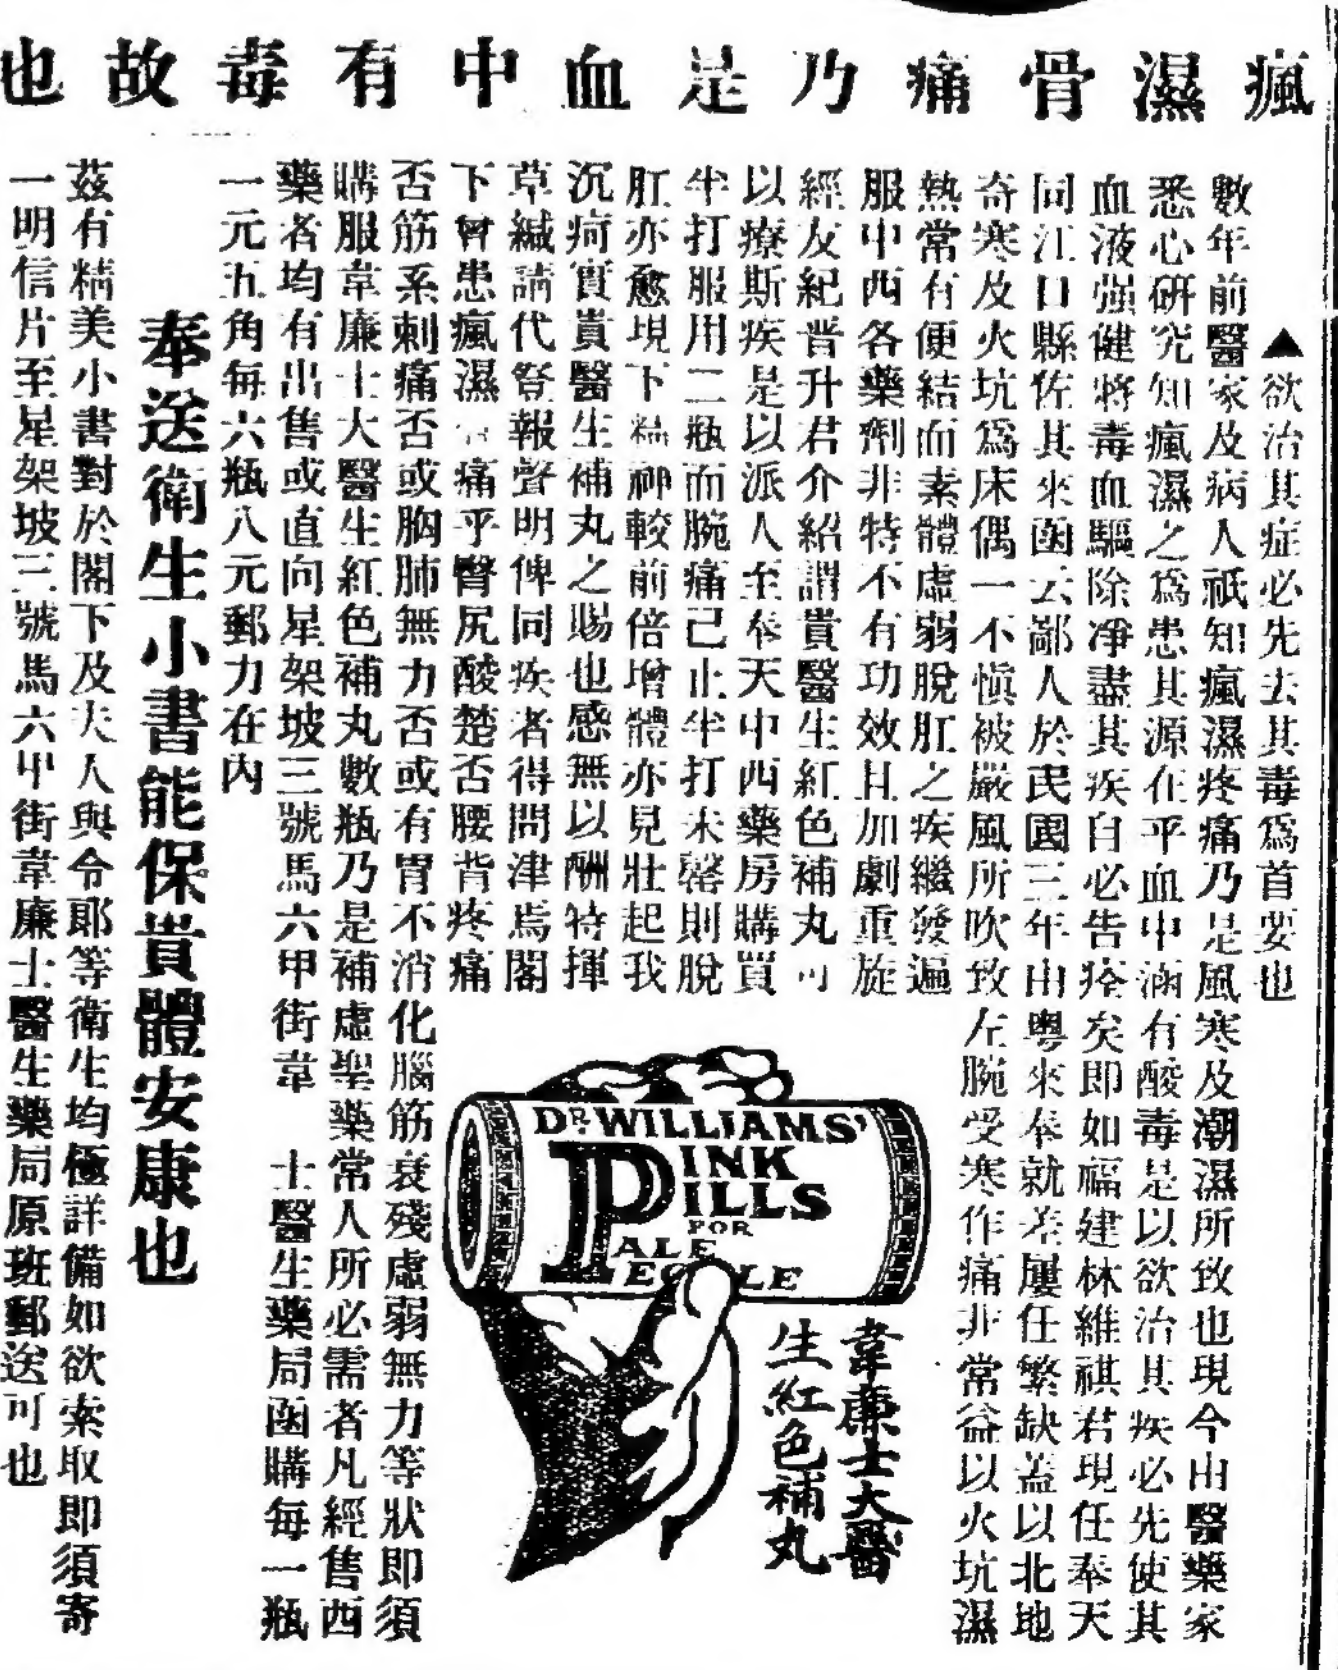 瘋濕骨痛乃是血中有毒故也
▲欲治其症必先去其毒爲首要也
數年前醫家及病人祇知瘋濕疼痛乃是風寒及潮濕所致也現今由醫藥家
悉心研究知瘋濕之爲患其源在乎血中涵有酸毒是以欲治其疾必先使其
血液强健將毒血驅除凈盡其疾自必告痊矣即如福建林維祺君現任奉天
同江口縣佐其來函云鄙人於民國三年由粵來奉就差屢任繁缺蓋以北地
奇寒及火坑爲床偶一不愼被嚴風所吹致左腕受寒作痛非常益以火坑濕
熱常有便結而素體虛弱脫肛之疾繼發遍
服中西各藥劑非特不有功效且加劇重旋
經友紀晋升君介紹謂貴醫生紅色補丸可
以療斯疾是以派人至奉天中西藥房購買
半打服用二瓶而腕痛已止半打未罄則脫
肛亦愈現下精神較前倍增體亦見壯起我
沉疴實貴醫生補丸之賜也感無以酬特揮
草緘請代登報聲明俾同疾者得問津焉閣
下曾患瘋濕骨痛乎臀尻酸楚否腰背疼痛
否筋系刺痛否或胸肺無力否或有胃不消化腦筋衰殘虛弱無力等狀即須
購服韋廉士大醫生紅色補丸數瓶乃是補虛聖藥常人所必需者凡經售西
藥者均有出售或直向星架坡三號馬六甲街韋 士醫生藥局函購每一瓶
一元五角每六瓶八元郵力在內
奉送衛生小書能保貴體安康也
茲有精美小書對於閣下及夫人與令郞等衛生均極詳備如欲索取即須寄
一明信片至星架坡三號馬六甲街韋廉士醫生藥局原班郵送可也
DR WILLIAMS'
PINK
PILLS
FOR
PALE
PEOPLE
韋廉士大醫
生紅色補丸